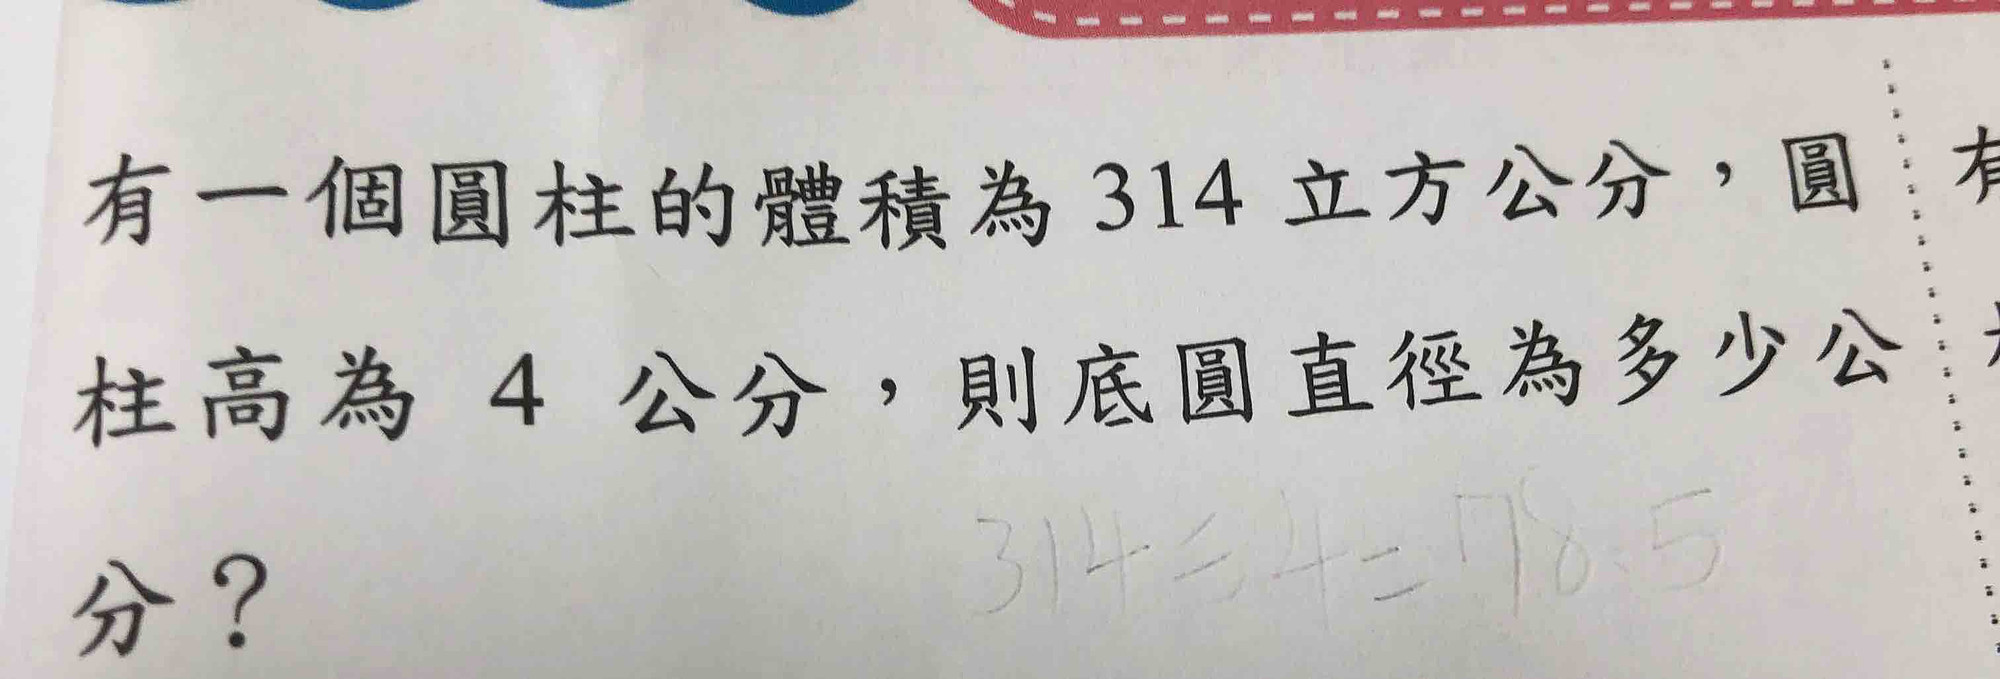 有一個圓柱的體積為314立方公分，圓
柱高為 4 公分，則底圓直徑為多少公
分？
314÷4=78.5
有